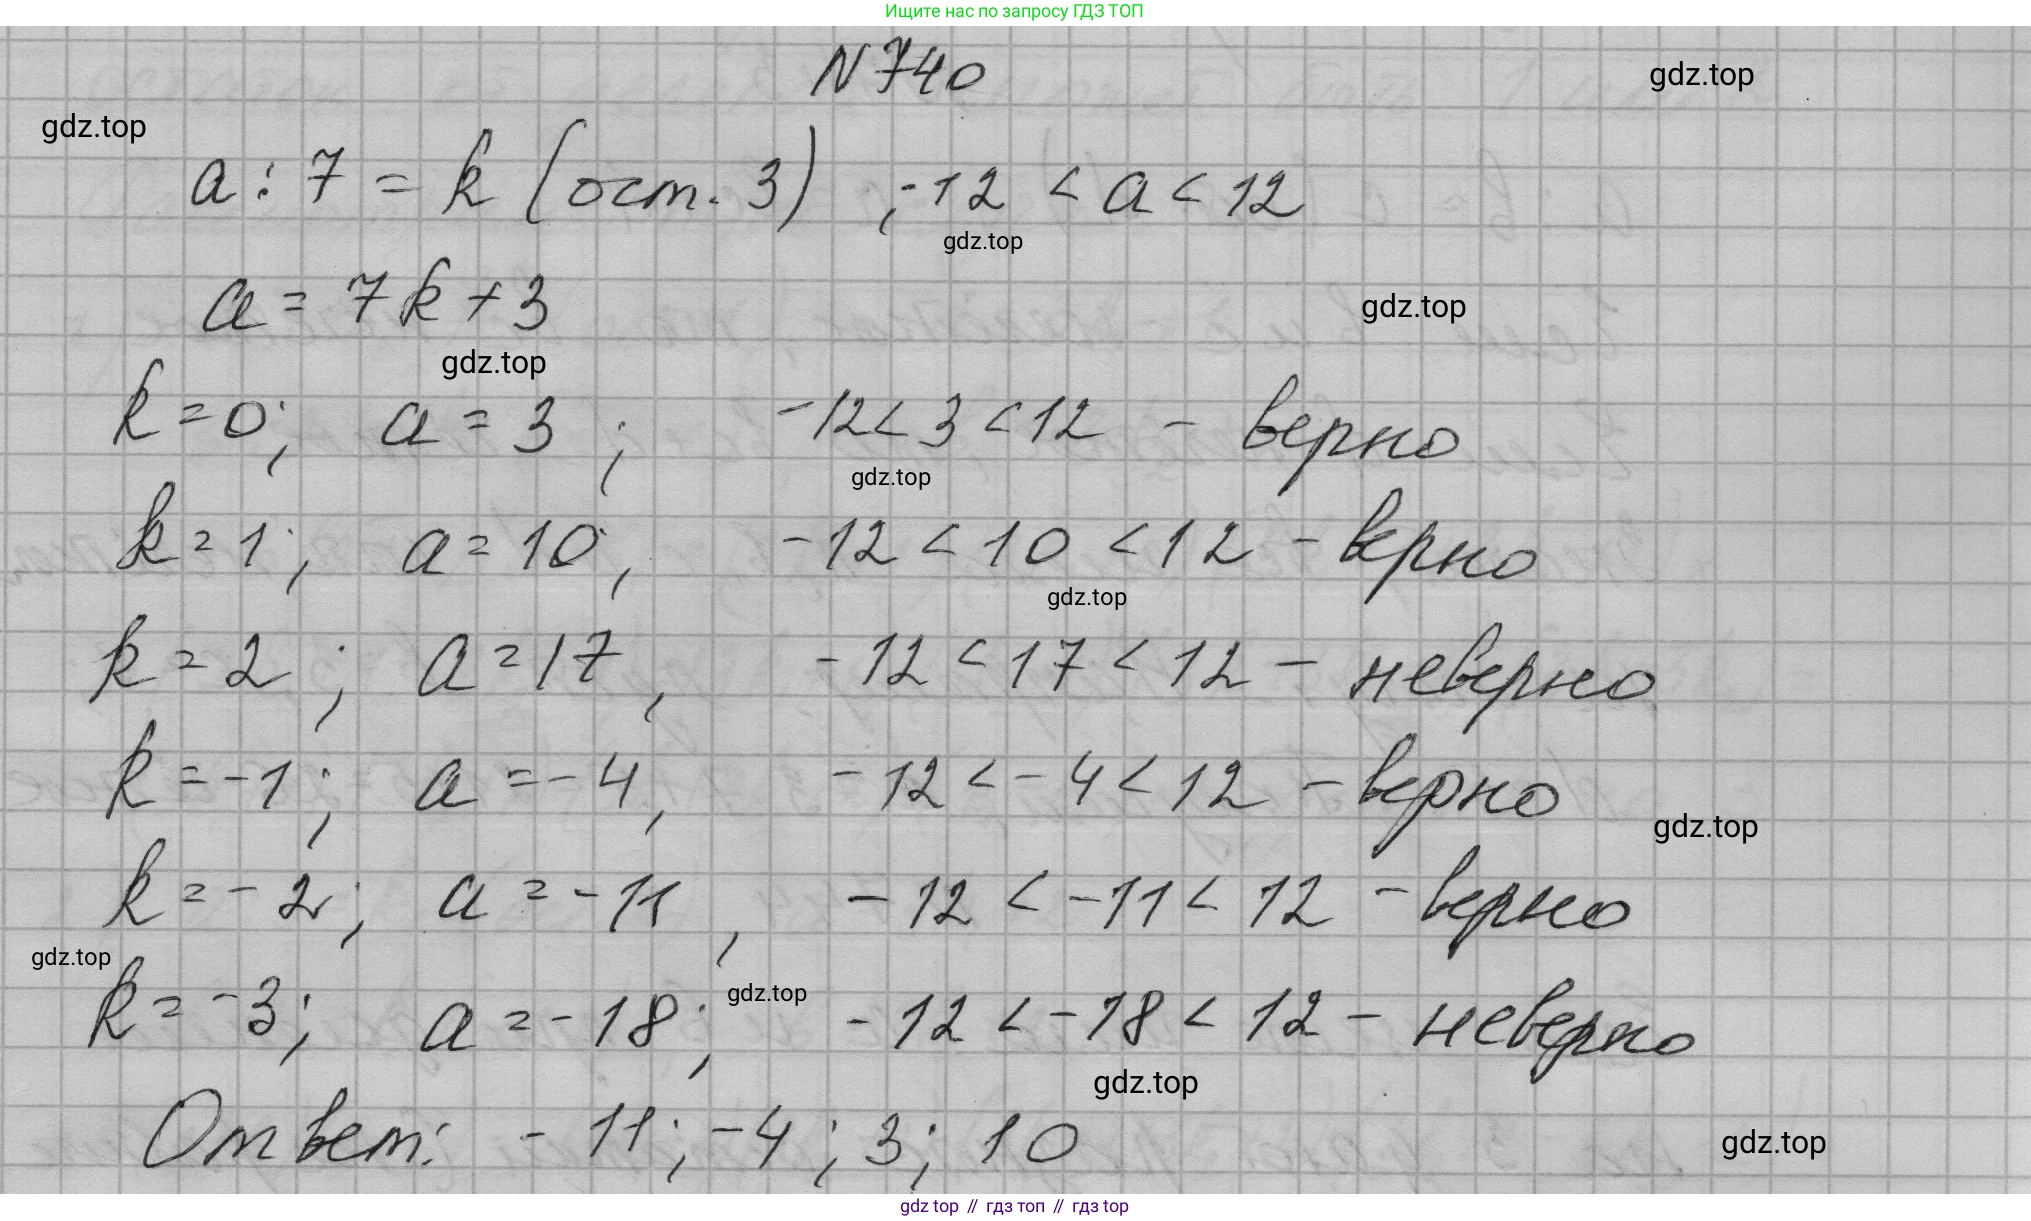 Ищите нас по запросу ГДЗ ТОП
N 740
gdz.top
gdz.top
a : 7 = k (ост. 3) ; -12 < a < 12
gdz.top
a = 7k + 3
gdz.top
gdz.top
k = 0; a = 3 ; -12 < 3 < 12 - верно
gdz.top
k = 1; a = 10; -12 < 10 < 12 - верно
gdz.top
k = 2 ; a = 17, -12 < 17 < 12 - неверно
k = -1 ; a = -4, -12 < -4 < 12 - верно
gdz.top
k = -2; a = -11 , -12 < -11 < 12 - верно
gdz.top
gdz.top
k = -3; a = -18; -12 < -18 < 12 - неверно
gdz.top
Ответ: -11; -4; 3; 10
gdz.top
gdz top // гдз топ // гдз top